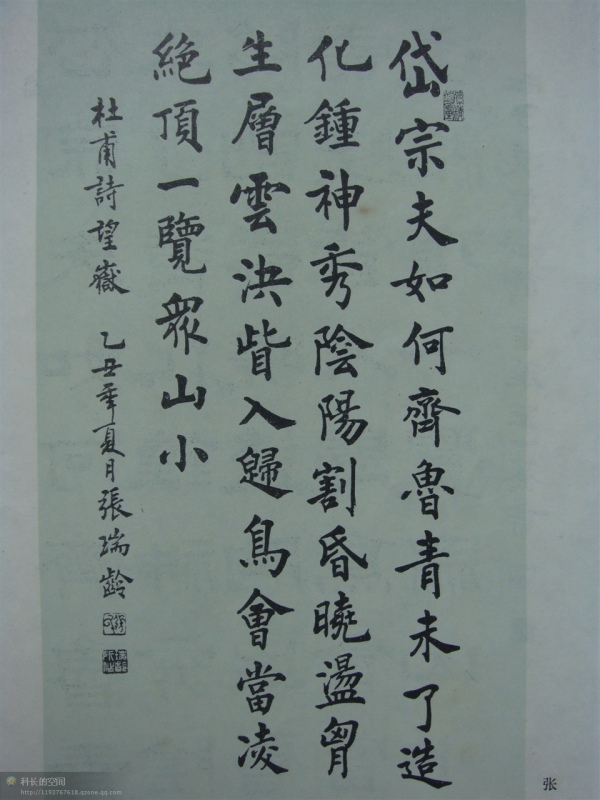 岱宗夫如何齊魯青未了造
化鍾神秀陰陽割昏曉盪胷
生層雲決眥入歸鳥會當凌
絕頂一覽衆山小
杜甫詩望嶽 乙丑年夏月張瑞齡
张
科长的空间
http://1193767618.qzone.qq.com